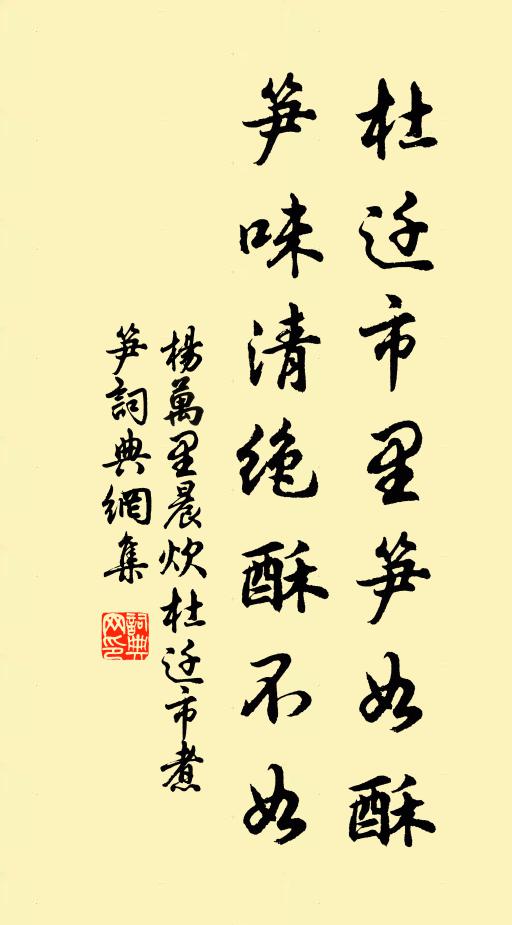 杜迁市里笋如酥
笋味清绝酥不如
楊萬里晨炊杜迁市煮
笋詞典網集
詞典网印